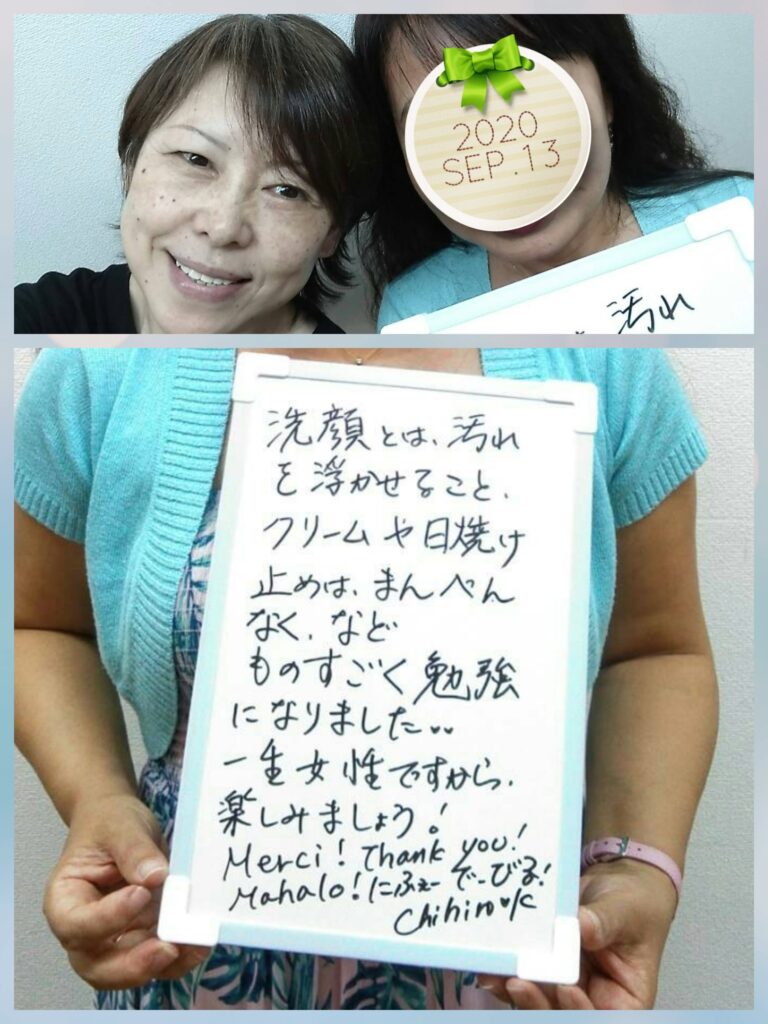 2020
SEP.13
汚れ
洗顔とは、汚れ
を浮かせること、
クリームや日焼け
止めは、まんべん
なく、など
ものすごく勉強
になりました..
一生女性ですから、
楽しみましょう!
Merci! Thank you!
Mahalo! にふぇーでーびる!
Chihiro♥K